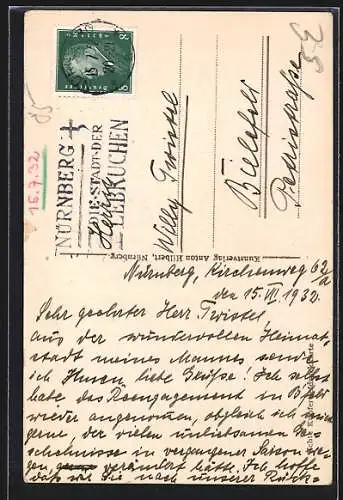 NÜRNBERG
DIE·STADT·DER
LEBKUCHEN
16.7.32
Herrn
Willy Twistel
Bielefeld
Petristraße
Kunstverlag Anton Hilbert, Nürnberg.
Nürnberg, Kirchenweg 62/a
den 15.VII 1932.
Sehr geehrter Herr Twistel,
aus der wundervollen Heimat-
stadt meines Mannes sende
ich Ihnen liebe Grüße! Ich selbst
habe das Reengagement in B'feld
wieder angenommen, obgleich ich
gerne, der vielen unliebsamen Ge-
schehnisse in vergangener Saison we-
gen, verändert hätte. Ich hoffe
daß wir Sie nach unserer Rück-